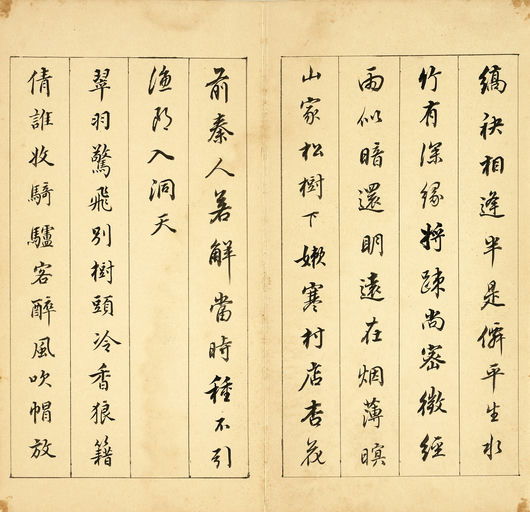 縞袂相逢半是僊平生水
竹有深緣將踈尚密微經
雨似暗還明遠在烟薄暝
山家松樹下嫰寒村店杏花
前秦人若解當時種不引
漁郎入洞天
翠羽驚飛別樹頭冷香狼籍
倩誰收騎驢客醉風吹帽放